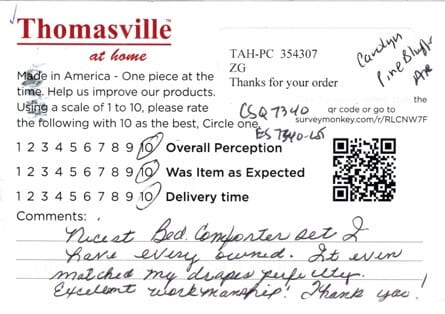 Thomasville™
at home
TAH-PC 354307
ZG
Thanks for your order
Carolyn
Pine Bluff
Ark
Made in America - One piece at the
time. Help us improve our products.
Using a scale of 1 to 10, please rate
the following with 10 as the best, Circle one.
CSQ7340
ES7340-
qr code or go to
surveymonkey.com/r/RLCNW7F
1 2 3 4 5 6 7 8 9 10 Overall Perception
1 2 3 4 5 6 7 8 9 10 Was Item as Expected
1 2 3 4 5 6 7 8 9 10 Delivery time
Comments:
Nicest Bed Comforter set I
have every owned. It even
matched my drapes perfectly.
Excellent workmanship! Thank you!